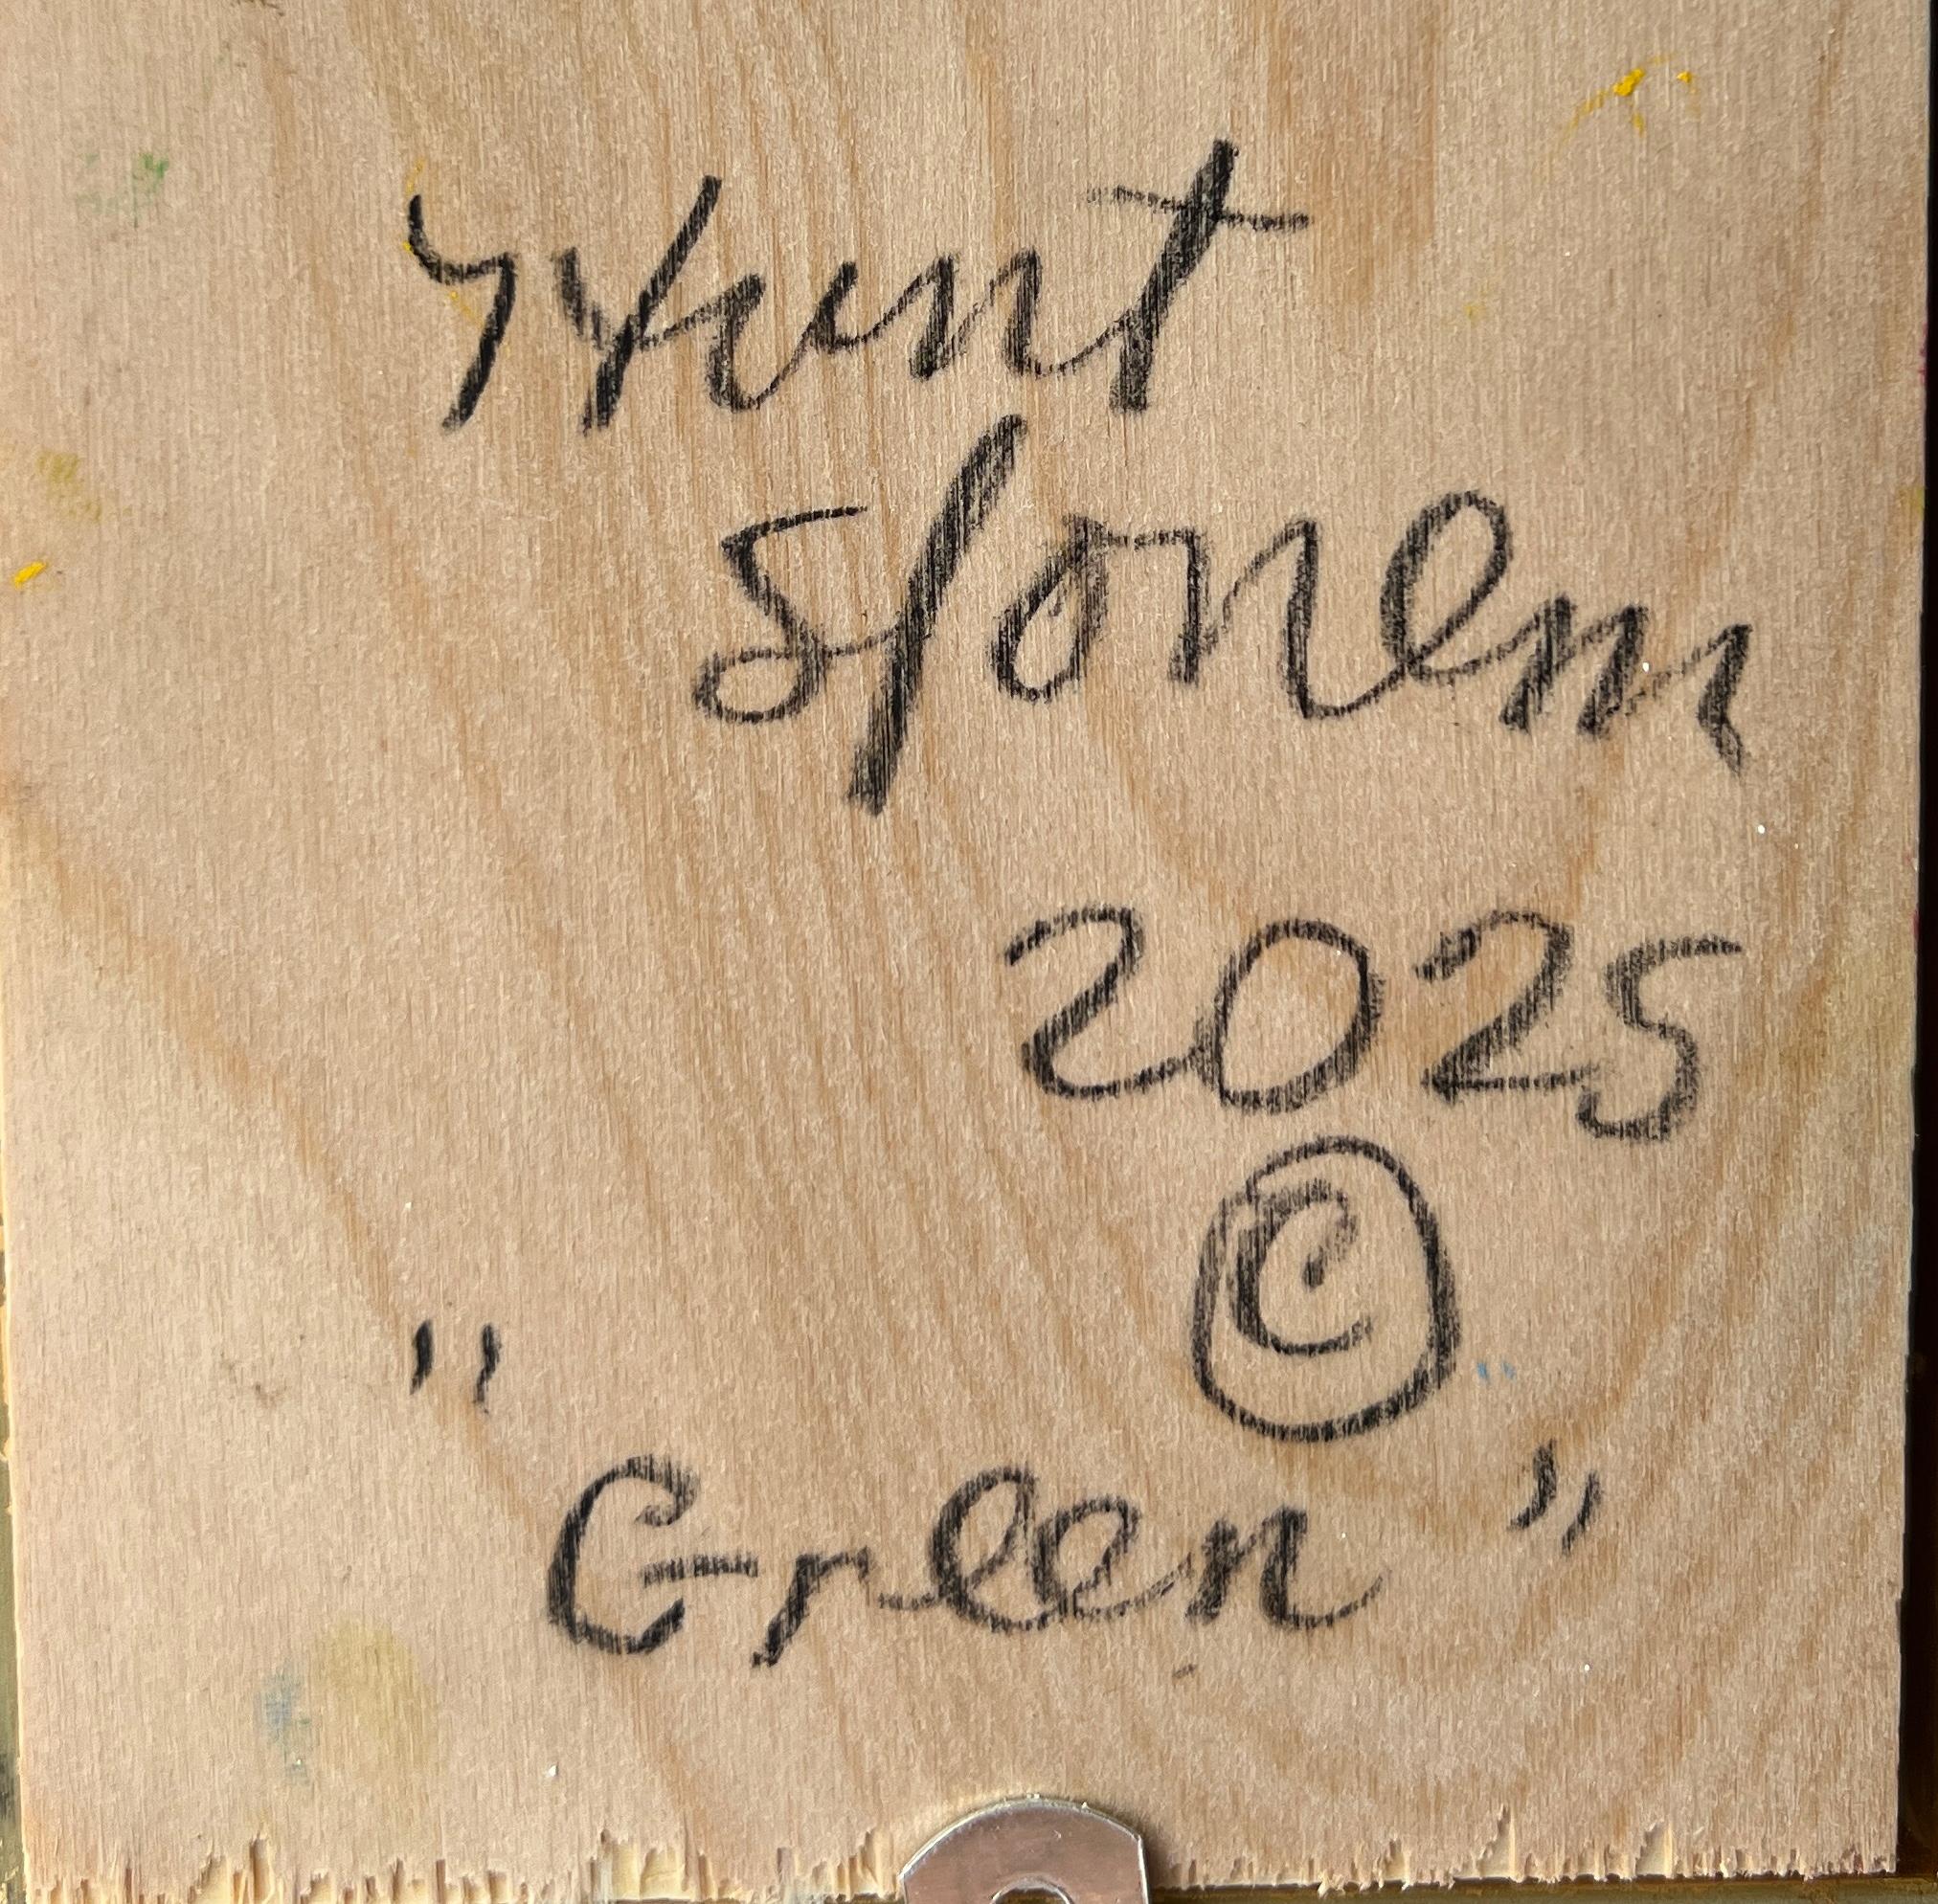 Hunt
Slonem
2025
©
"Green"